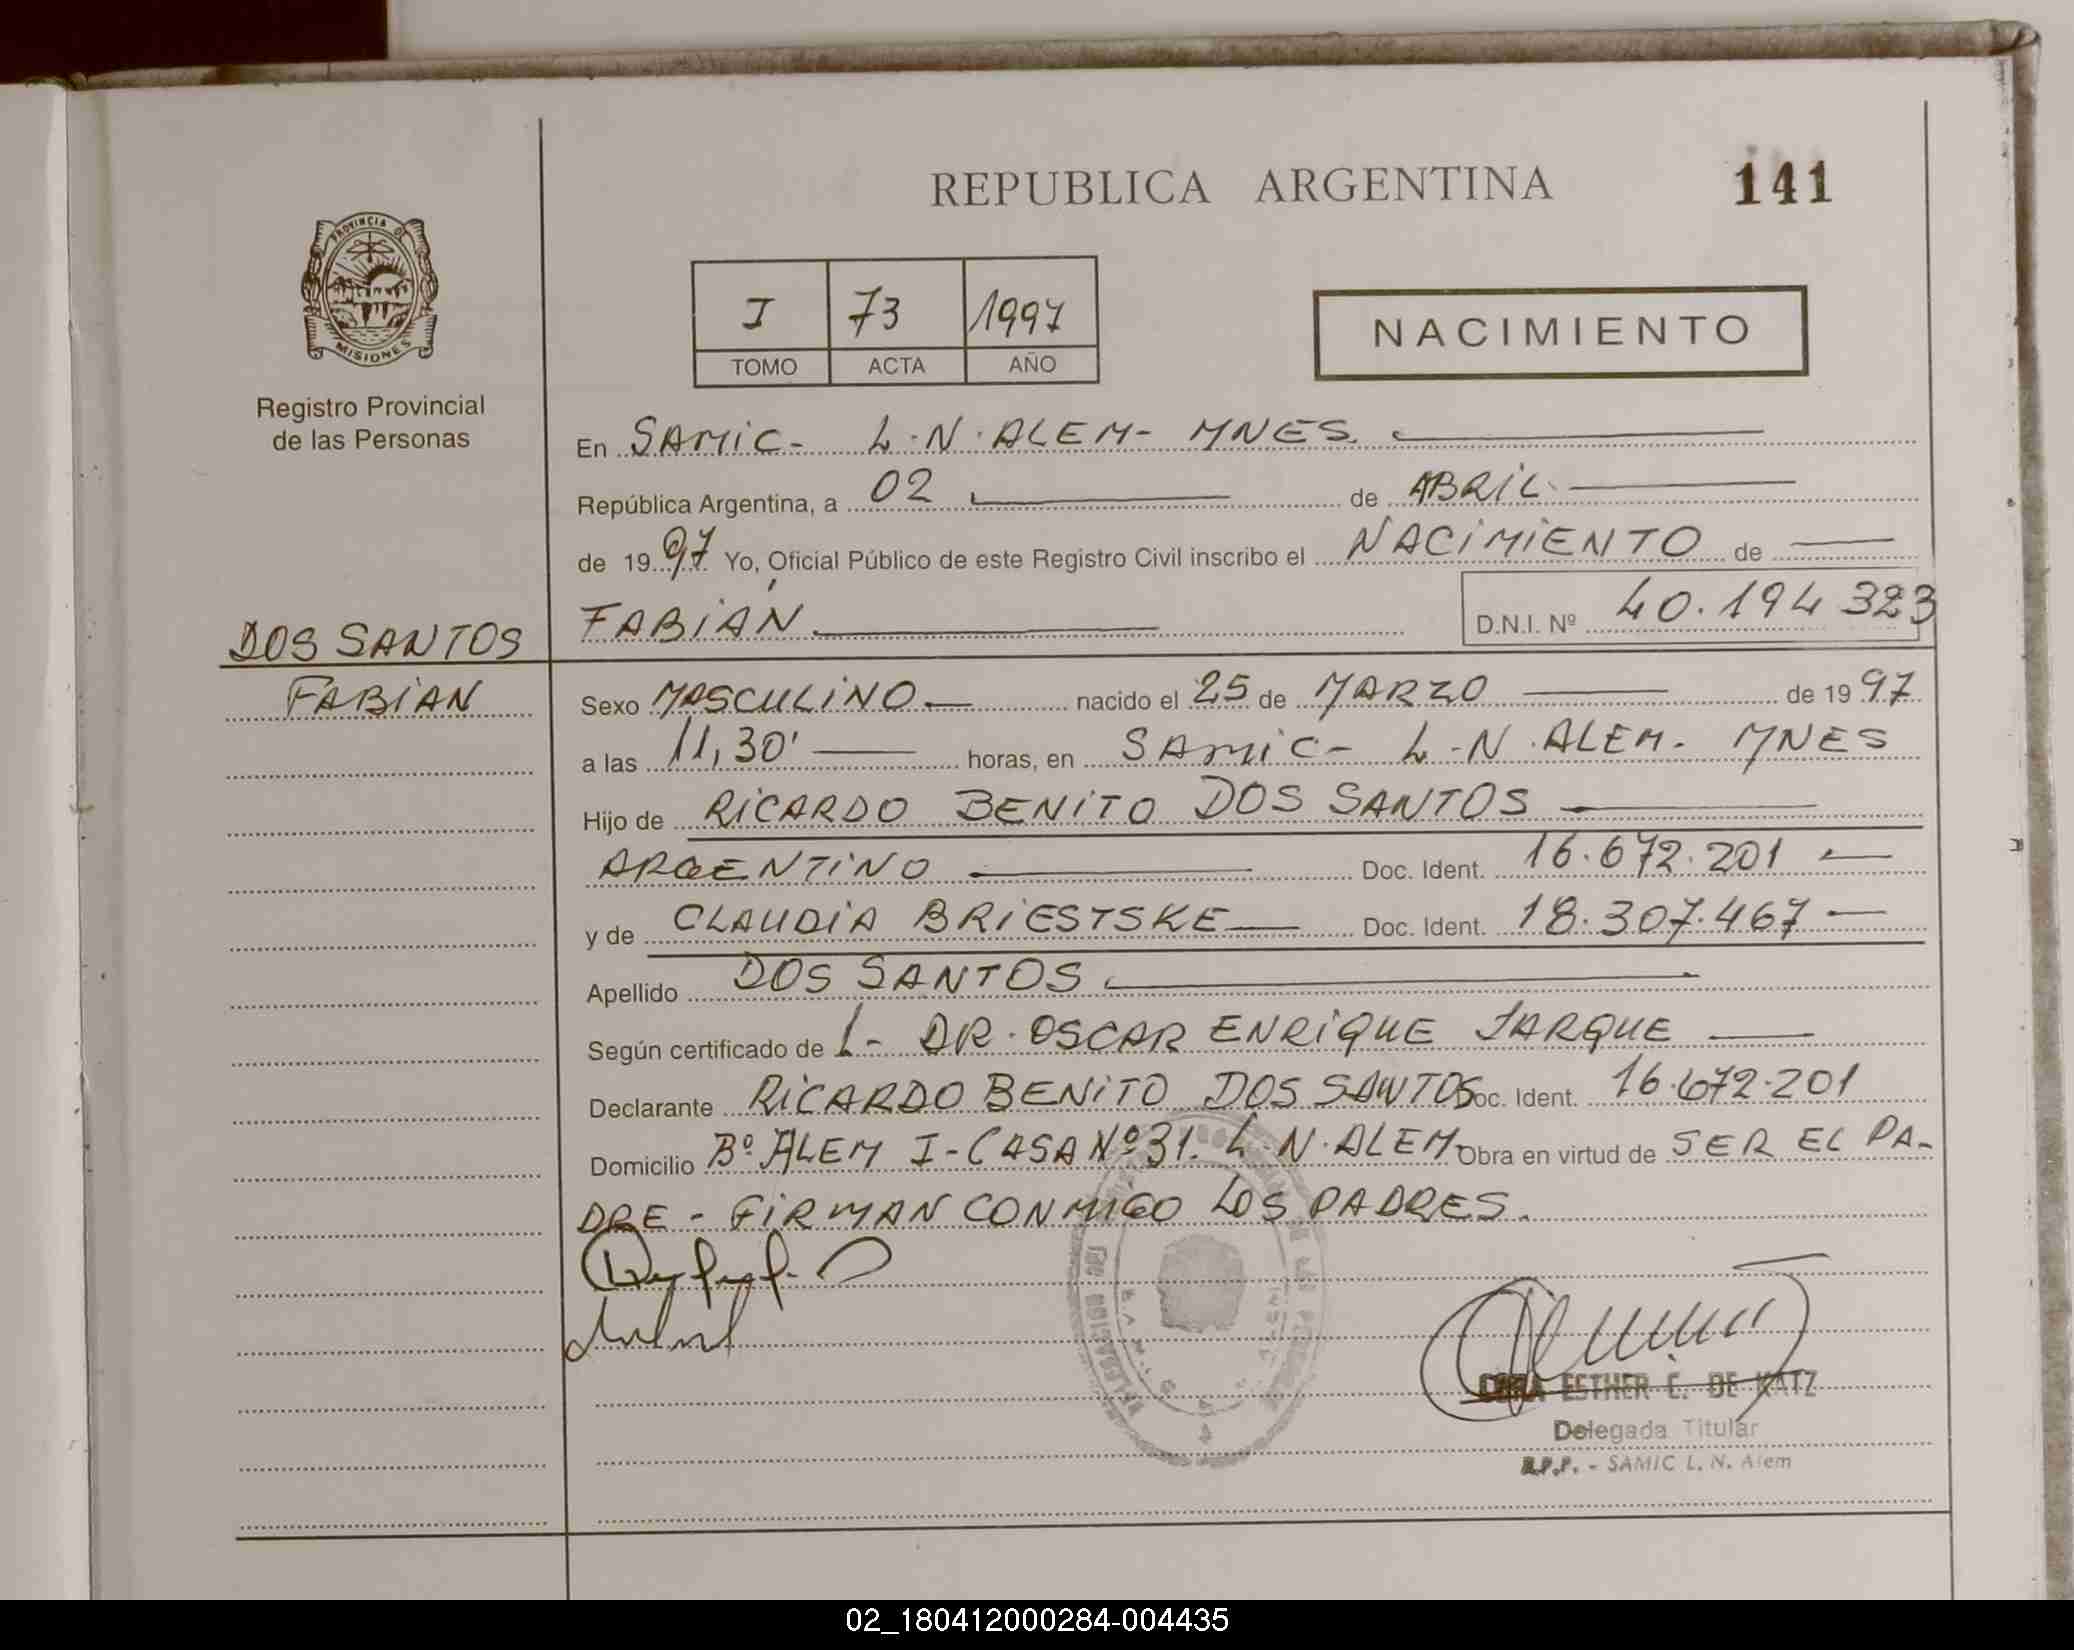 REPUBLICA ARGENTINA
141
PROVINCIA DE
MISIONES
Registro Provincial
de las Personas
I 73 1997
TOMO ACTA AÑO
NACIMIENTO
En SAMIC- L.N.ALEM- MNES.
República Argentina, a 02 de ABRIL
de 1997 Yo, Oficial Público de este Registro Civil inscribo el NACIMIENTO de
FABIÁN
D.N.I. Nº 40.194 323
DOS SANTOS
FABIAN
Sexo MASCULINO nacido el 25 de MARZO de 1997
a las 11,30' horas, en SAMIC- L.N.ALEM. MNES
Hijo de RICARDO BENITO DOS SANTOS
ARGENTINO Doc. Ident. 16.672.201
y de CLAUDIA BRIESTSKE Doc. Ident. 18.307.467
Apellido DOS SANTOS
Según certificado de L- DR. OSCAR ENRIQUE JARQUE
Declarante RICARDO BENITO DOS SANTOS Doc. Ident. 16.672.201
Domicilio Bº ALEM I-CASA Nº 31. L.N.ALEM Obra en virtud de SER EL PA-
DRE - FIRMAN CONMIGO LOS PADRES.
ESTHER E. DE KATZ
Delegada Titular
R.P.P. - SAMIC L. N. Alem
02_180412000284-004435